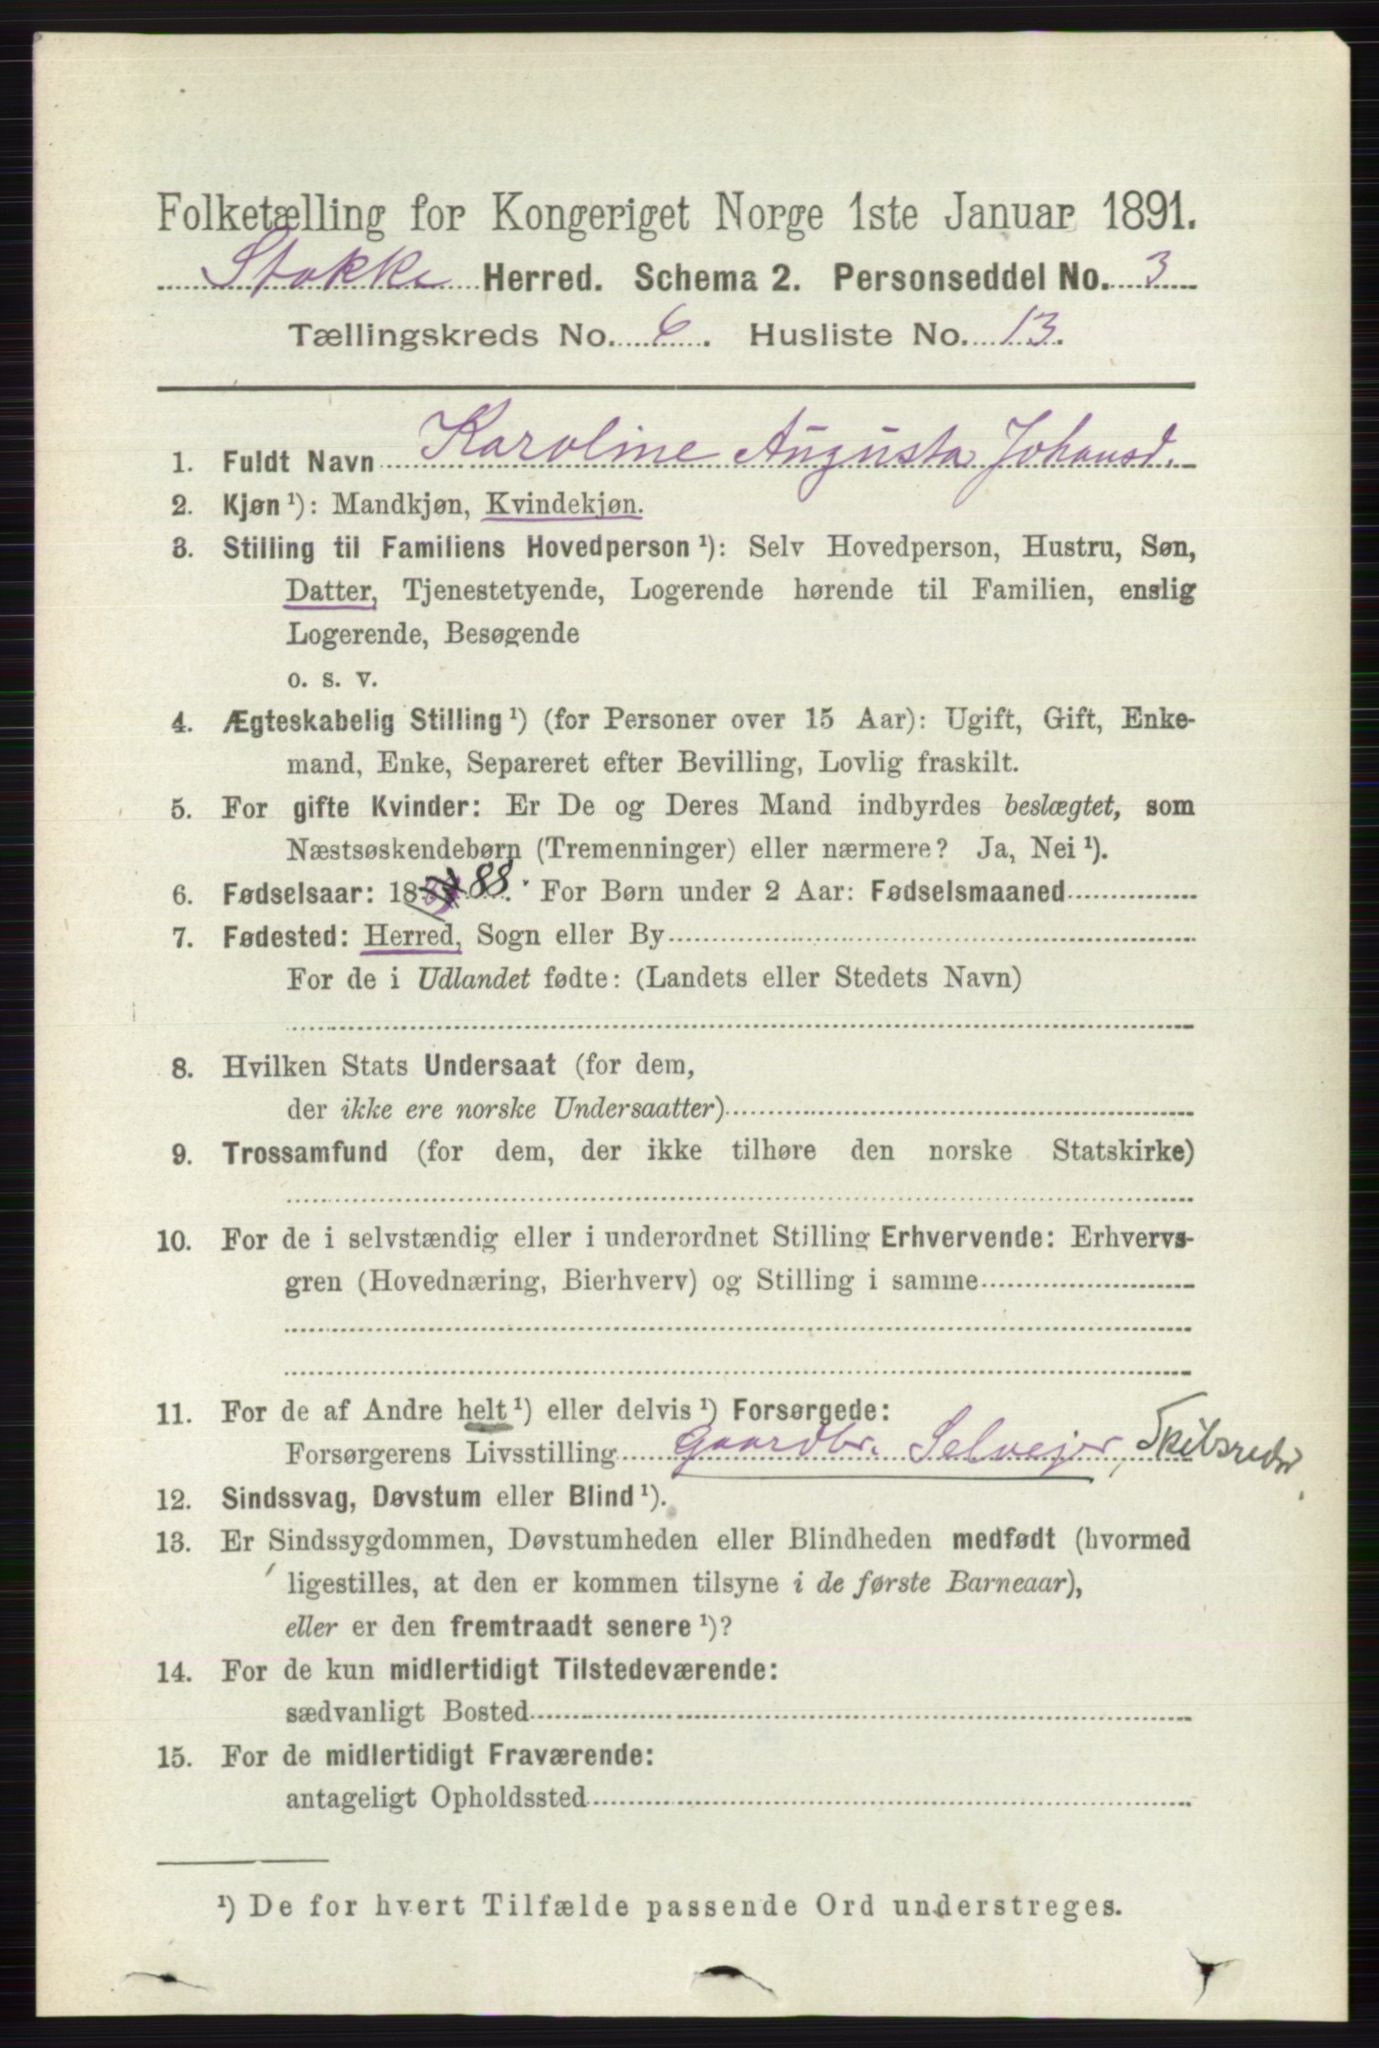 Folketælling for Kongeriget Norge 1ste Januar 1891.
Stokke Herred. Schema 2. Personseddel No. 3
Tællingskreds No. 6. Husliste No. 13.
1. Fuldt Navn Karoline Augusta Johansd.
2. Kjøn ¹): Mandkjøn, Kvindekjøn.
3. Stilling til Familiens Hovedperson ¹): Selv Hovedperson, Hustru, Søn,
Datter, Tjenestetyende, Logerende hørende til Familien, enslig
Logerende, Besøgende
o. s. v.
4. Ægteskabelig Stilling ¹) (for Personer over 15 Aar): Ugift, Gift, Enke-
mand, Enke, Separeret efter Bevilling, Lovlig fraskilt.
5. For gifte Kvinder: Er De og Deres Mand indbyrdes beslægtet, som
Næstsøskendebørn (Tremenninger) eller nærmere? Ja, Nei ¹).
6. Fødselsaar: 18 88. For Børn under 2 Aar: Fødselsmaaned
7. Fødested: Herred, Sogn eller By
For de i Udlandet fødte: (Landets eller Stedets Navn)
8. Hvilken Stats Undersaat (for dem,
der ikke ere norske Undersaatter)
9. Trossamfund (for dem, der ikke tilhøre den norske Statskirke)
10. For de i selvstændig eller i underordnet Stilling Erhvervende: Erhvervs-
gren (Hovednæring, Bierhverv) og Stilling i samme
11. For de af Andre helt ¹) eller delvis ¹) Forsørgede:
Forsørgerens Livsstilling Gaardbr. Selveier, Skibsreder
12. Sindssvag, Døvstum eller Blind ¹).
13. Er Sindssygdommen, Døvstumheden eller Blindheden medfødt (hvormed
ligestilles, at den er kommen tilsyne i de første Barneaar),
eller er den fremtraadt senere ¹)?
14. For de kun midlertidigt Tilstedeværende:
sædvanligt Bosted
15. For de midlertidigt Fraværende:
antageligt Opholdssted
¹) De for hvert Tilfælde passende Ord understreges.